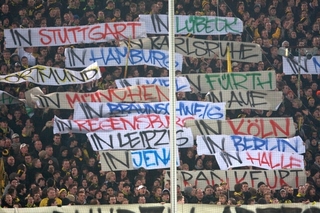 IN STUTTGART
IN LÜBECK
IN HAMBURG
KARLSRUHE
FÜRTH
IN MÜNCHEN
IN AUE
IN BRAUNSCHWEIG
IN REGENSBURG
IN KÖLN
IN LEIPZIG
IN BERLIN
IN JENA
IN HALLE